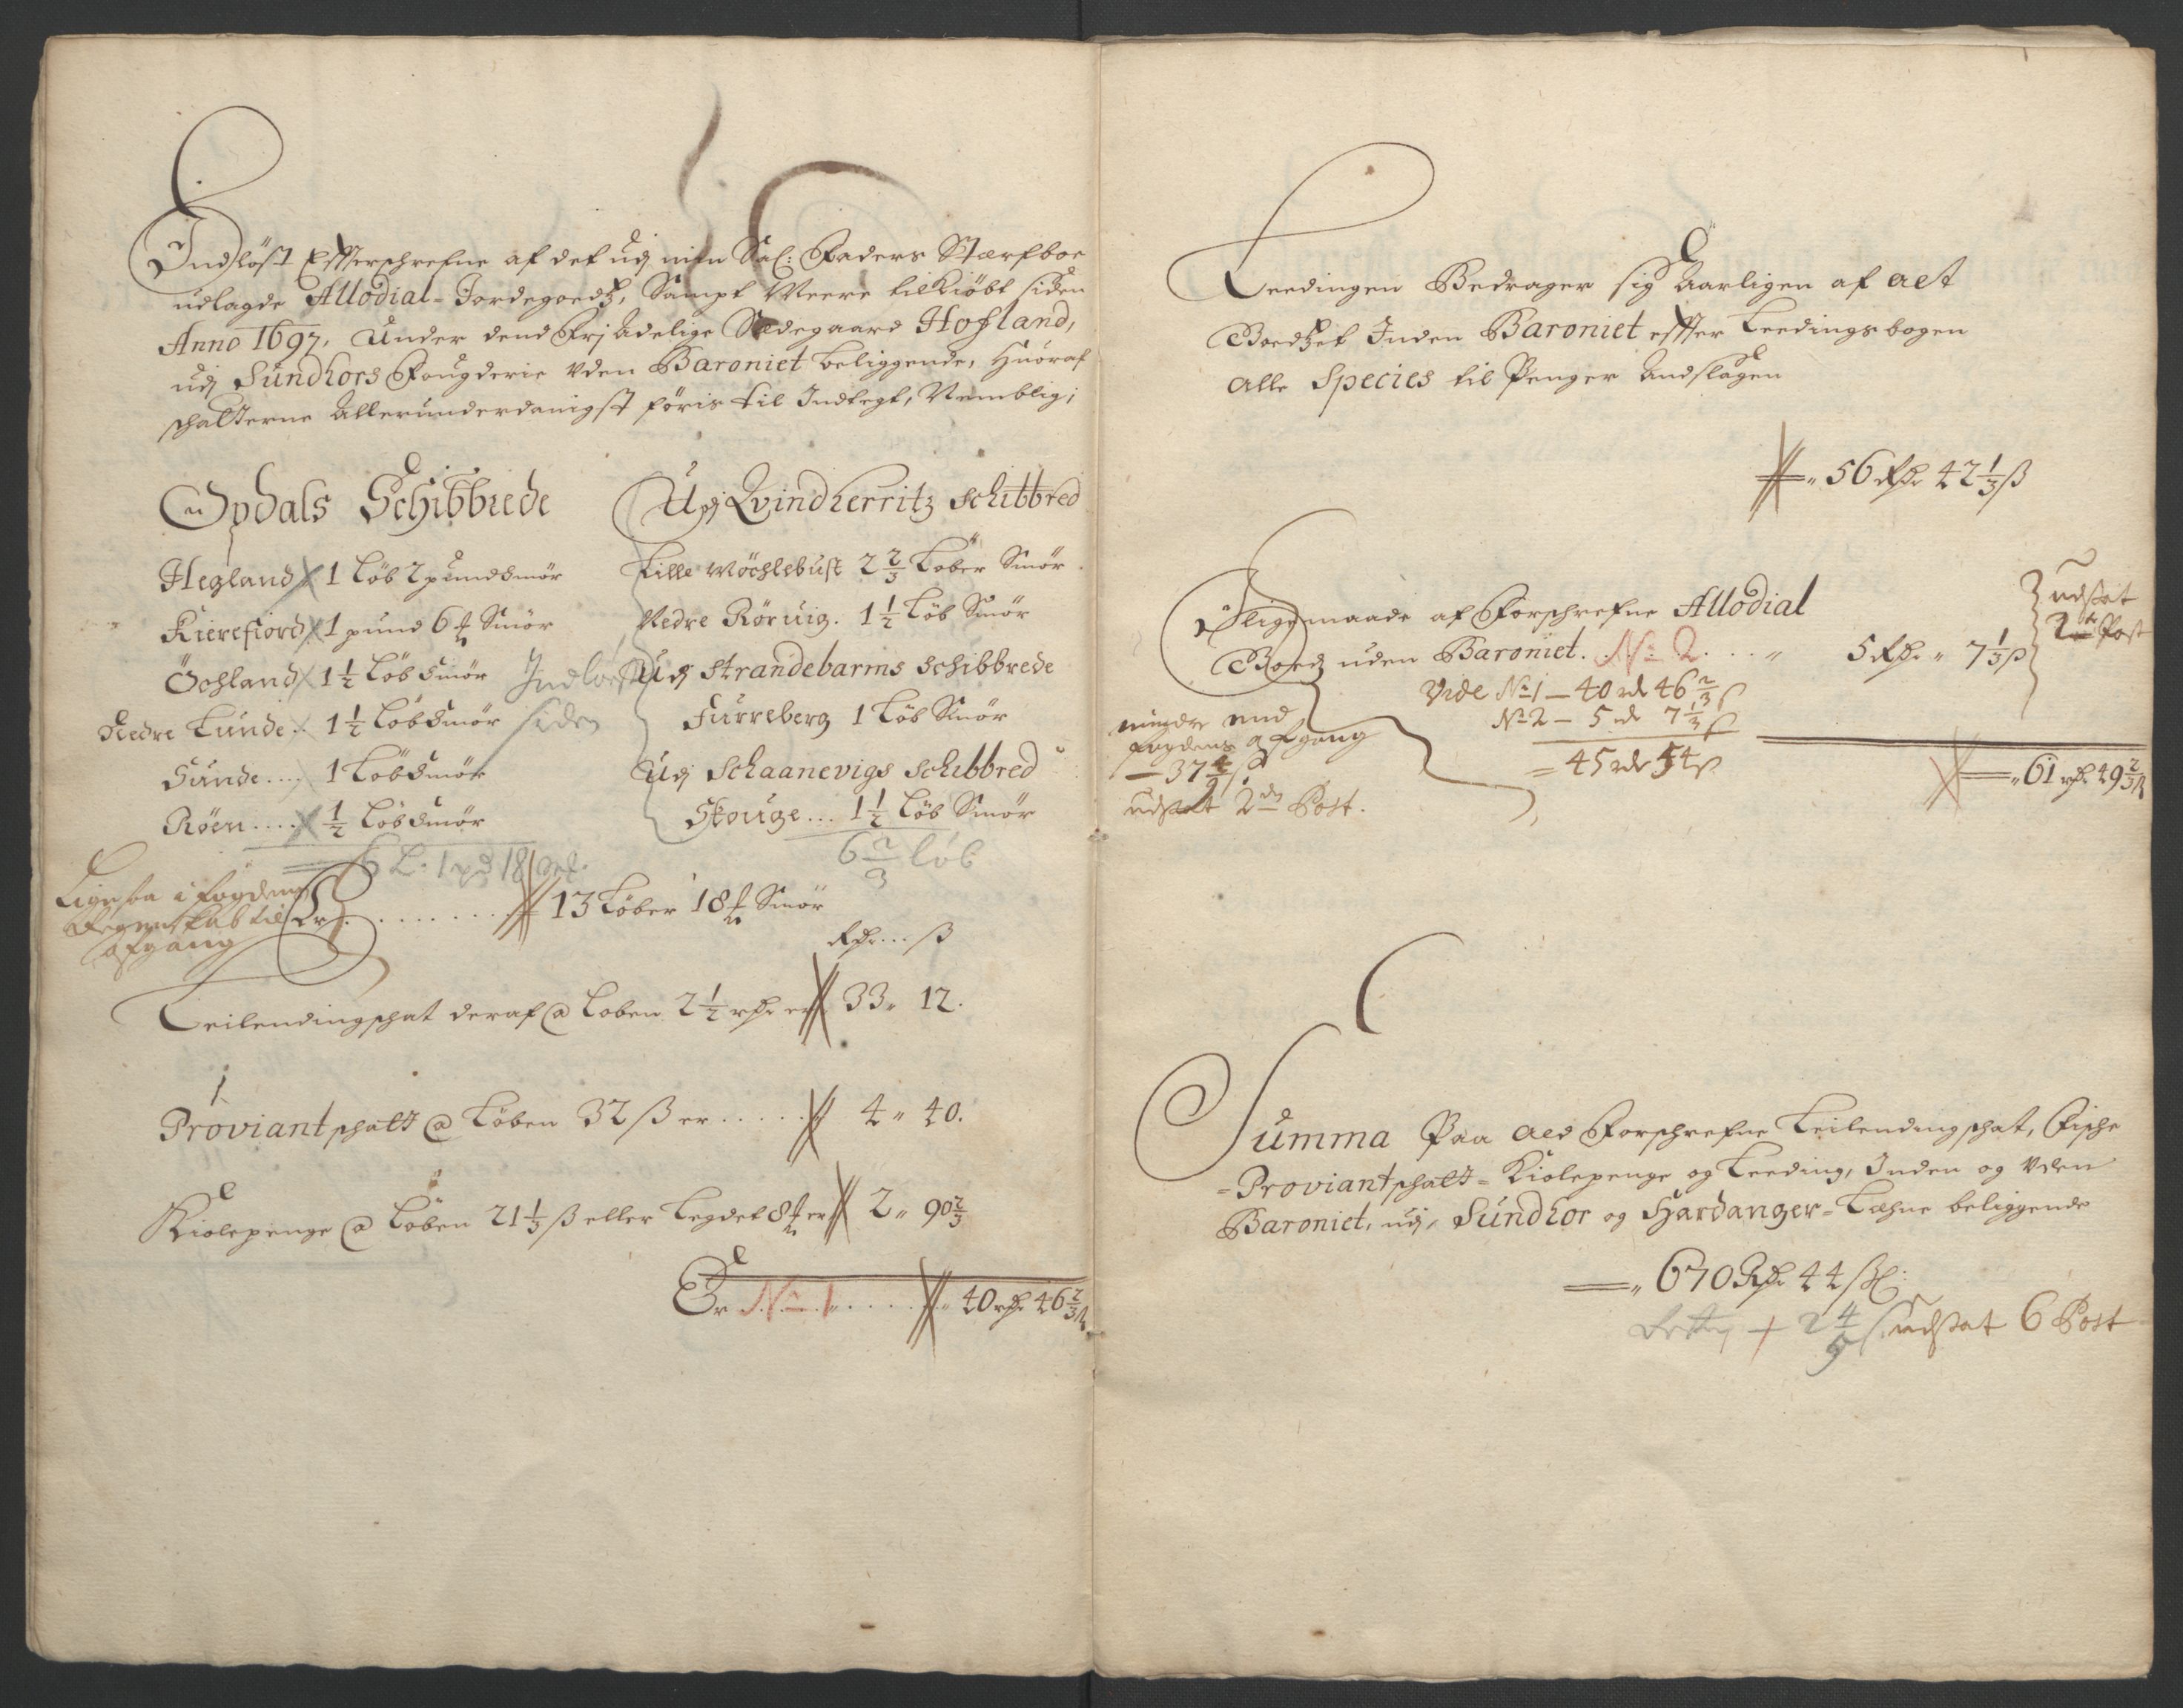 Indløst Effterschrefne af det udj min Sal: Faders Stærfboe
udlagde Allodial-Jordegoedtz, Sampt Meere tilkiöbt siden
Anno 1697, Under dend Frj Adelige Sædegaard Hofland,
udj Sundhors Fougderie uden Baroniet beliggende, Huoraf
schatterne Allerunderdanigst føris til Indtegt, Nemblig;
Opdals Schibbrede
Hegland 1 Løb 2 pund Smör
Kierefiord 1 pund 6 ℔ Smör
Öchland 1 1/2 Løb Smör
Nedre Lunde 1 1/2 Løb Smör
Sunde .... 1 Løb Smör
Röen .... 1/2 Løb Smör
6 L. 1 pd 18
Indløest
siden
Udj Qvindherritz Schibbred
Lille Möchlebust 2 2/3 Løber Smör
Nedre Röruig. 1 1/2 Løb Smör
Udj Strandebarms Schibbrede
Furreberg 1 Løb Smör
Udj Schaanevigs Schibbred
Skouge ... 1 1/2 Løb Smör
6 2/3 løb
Ligesaa i fogdens
Regenskab til
afgang
Er ........ 13 Løber 18 ℔ Smör
Rdr ... ß
Leilendingschat deraf @ Løben 2 1/2 rdr er 33 " 12.
Proviantschatt @ Løben 32 ß er ..... 4 " 40.
Kiolepenge @ Løben 21 1/3 ß eller Legdet 8 ℔ er 2 " 90 2/3
Er No 1 ..... 40 rdr 46 2/3 ß
Leedingen Bedrager sig Aarligen af alt
Goedtzet Inden Baroniet effter Leedingsbogen
Alle Species til Penger Andslagen
" 56 Rdr 42 1/3 ß
Ligemaade af Forschrefne Allodial
Goedz uden Baroniet. No 2 ... " 5 Rdr " 7 1/3 ß
udsat
2den Post
Vide No 1 - 40 rd 46 2/3 ß
No 2 - 5 rd 7 1/3 ß
= 45 rd 54 ß
mindre end
fogdens afgang
- 37 4/9 ß
udsat 2den Post.
" 61 rdr 49 2/3 ß
Summa Paa ald Forschrefne Leilendingschat, Fische
-Proviantschatt-Kiolepenge og Leeding, Inden og Uden
Baroniet, udj Sundhor og Hardanger-Læhne beliggende
" 670 Rdr 44 ß
+ 2 4/9 ß udsat 6 Post